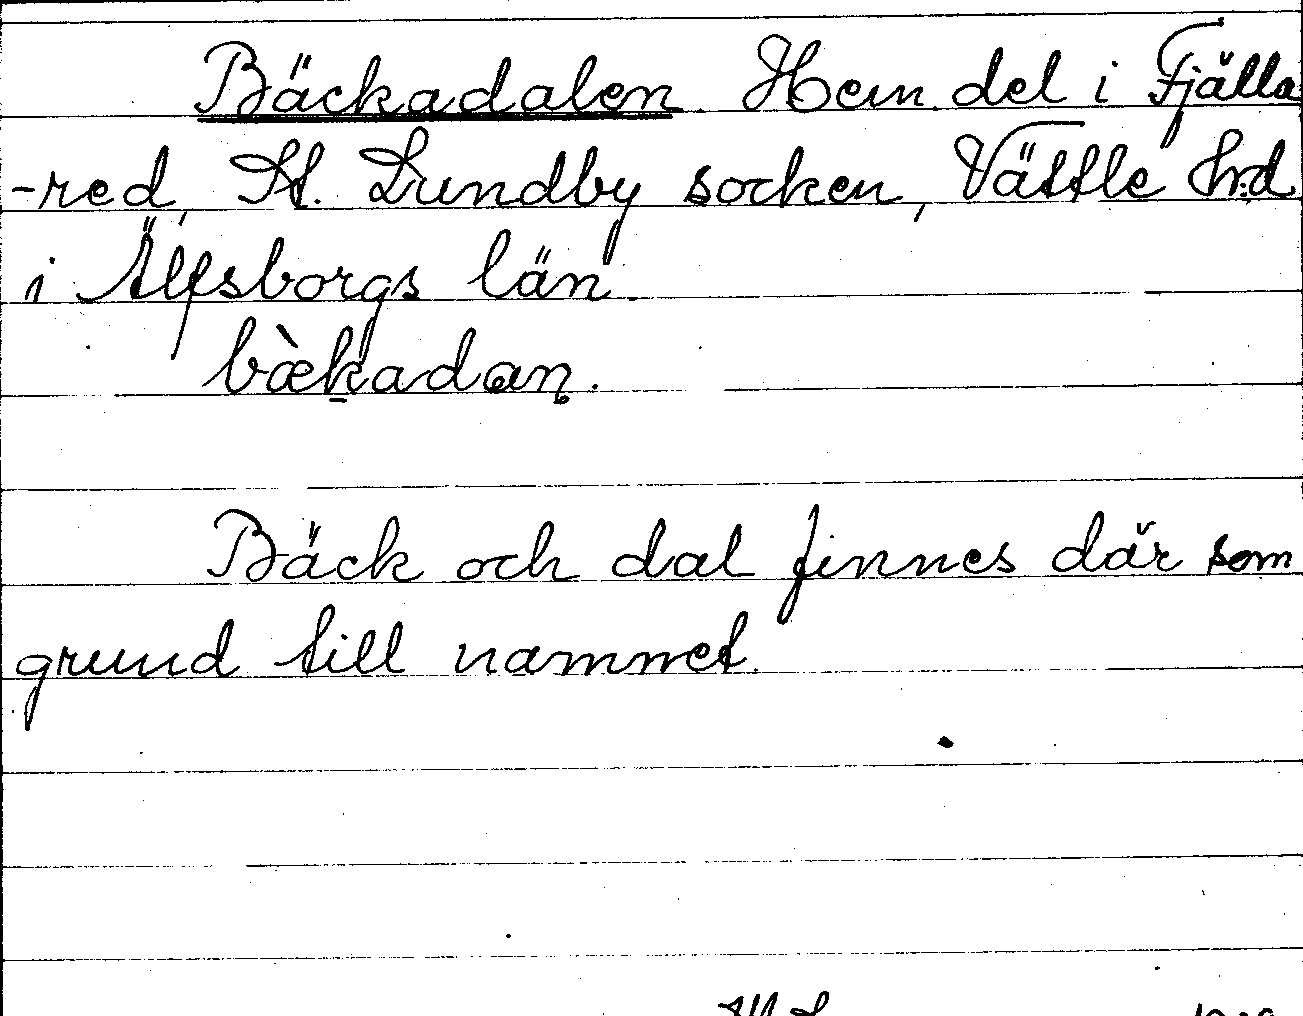 Bäckadalen Hem.del i Fjälla
-red, St. Lundby socken, Vättle h:d
i Älfsborgs län
bàkadan.
Bäck och dal finnes där som
grund till namnet.